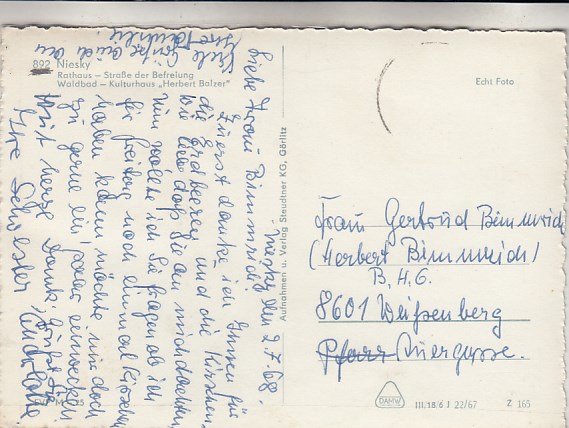 892 Niesky
Rathaus – Straße der Befreiung
Waldbad – Kulturhaus „Herbert Balzer"
Echt Foto
Aufnahmen u. Verlag Steudtner KG, Görlitz
Niesky den 2.7.68.
Liebe Frau Bimmrich!
Zuerst danke ich Ihnen für
die Erdbeeren und die Kirschen.
Wie lieb daß Sie an mich dachten
nun wollte ich Sie fragen ob ich
bis Freitag noch einmal Kirschen
haben kann, möchte mir doch
zu gerne ein einwecken
Mit herzl. Dank, grüßt Sie
Ihre Schwester
Viele Grüße auch von
Frau Gertrud Bimmrich
(Herbert Bimmrich)
B. H. G.
8601 Weißenberg
Pfarr Quergasse.
DAMW
III/18/6 J 22/67
Z 165